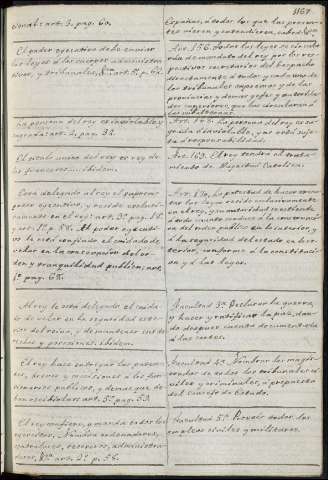 1167
cional: art. 3. pag. 60.
El poder executivo debe enviar
las leyes á los cuerpos administra-
tivos, y tribunales,
La persona del rey es inviolable, y
sagrada: art. 2. pag. 32.
El titulo unico del rey es rey de
los franceses.... ibidem.
Está delegado al rey el supremo
poder executivo, y reside exclusi-
vamente en el rey: art. 3º pag.
Al poder executi-
vo le está confiado el cuidado de
velar en la conservacion del or-
den y tranquilidad publica: art.
1º pag. 68.
Al rey le está delegado el cuida-
do de velar en la seguridad este-
rior del reino, y de mantener sus de-
rechos y posesiones: ibidem.
El rey hace entregar las paten-
tes, breves y comisiones á los fun-
cionarios publicos, y demas que de-
ban recibirlas: art. 5º pag. 59.
El rey confiere, y manda todos los
ejercitos, Nombra
administra-
dores, art. 2º p. 56.
Españas, á todos los que las presen-
tes vieren y entendieren, sabed
Art. 156. Todas las leyes se circula-
rán de mandato del rey por los res-
pectivos secretarios del despacho
directamente á todos y cada uno de
los tribunales supremos y de las
provincias, y demas gefes y autorida-
des superiores, que las circularán á
las subalternas.
Art. 168. La persona del rey es sa-
grada é inviolable, y no está suje-
ta á responsabilidad.
Art. 169. El rey tendrá el trata-
miento de Magestad Catolica.
Art. 170. La potestad de hacer execu-
tar las leyes reside exclusivamente
en el rey, y su autoridad se estiende
á todo cuanto conduce á la conserva-
cion del orden publico en lo interior, y
á la seguridad del estado en lo es-
terior, conforme á la constitucion
y á las leyes.
Facultad 3ª Declarar la guerra,
y hacer y ratificar la paz, dan-
do despues cuenta documentada
á las cortes.
Facultad 4ª Nombrar los magis-
trados de todos los tribunales ci-
viles y criminales, á propuesta
del Consejo de Estado.
Facultad 5ª Proveer todos los
empleos civiles y militares.